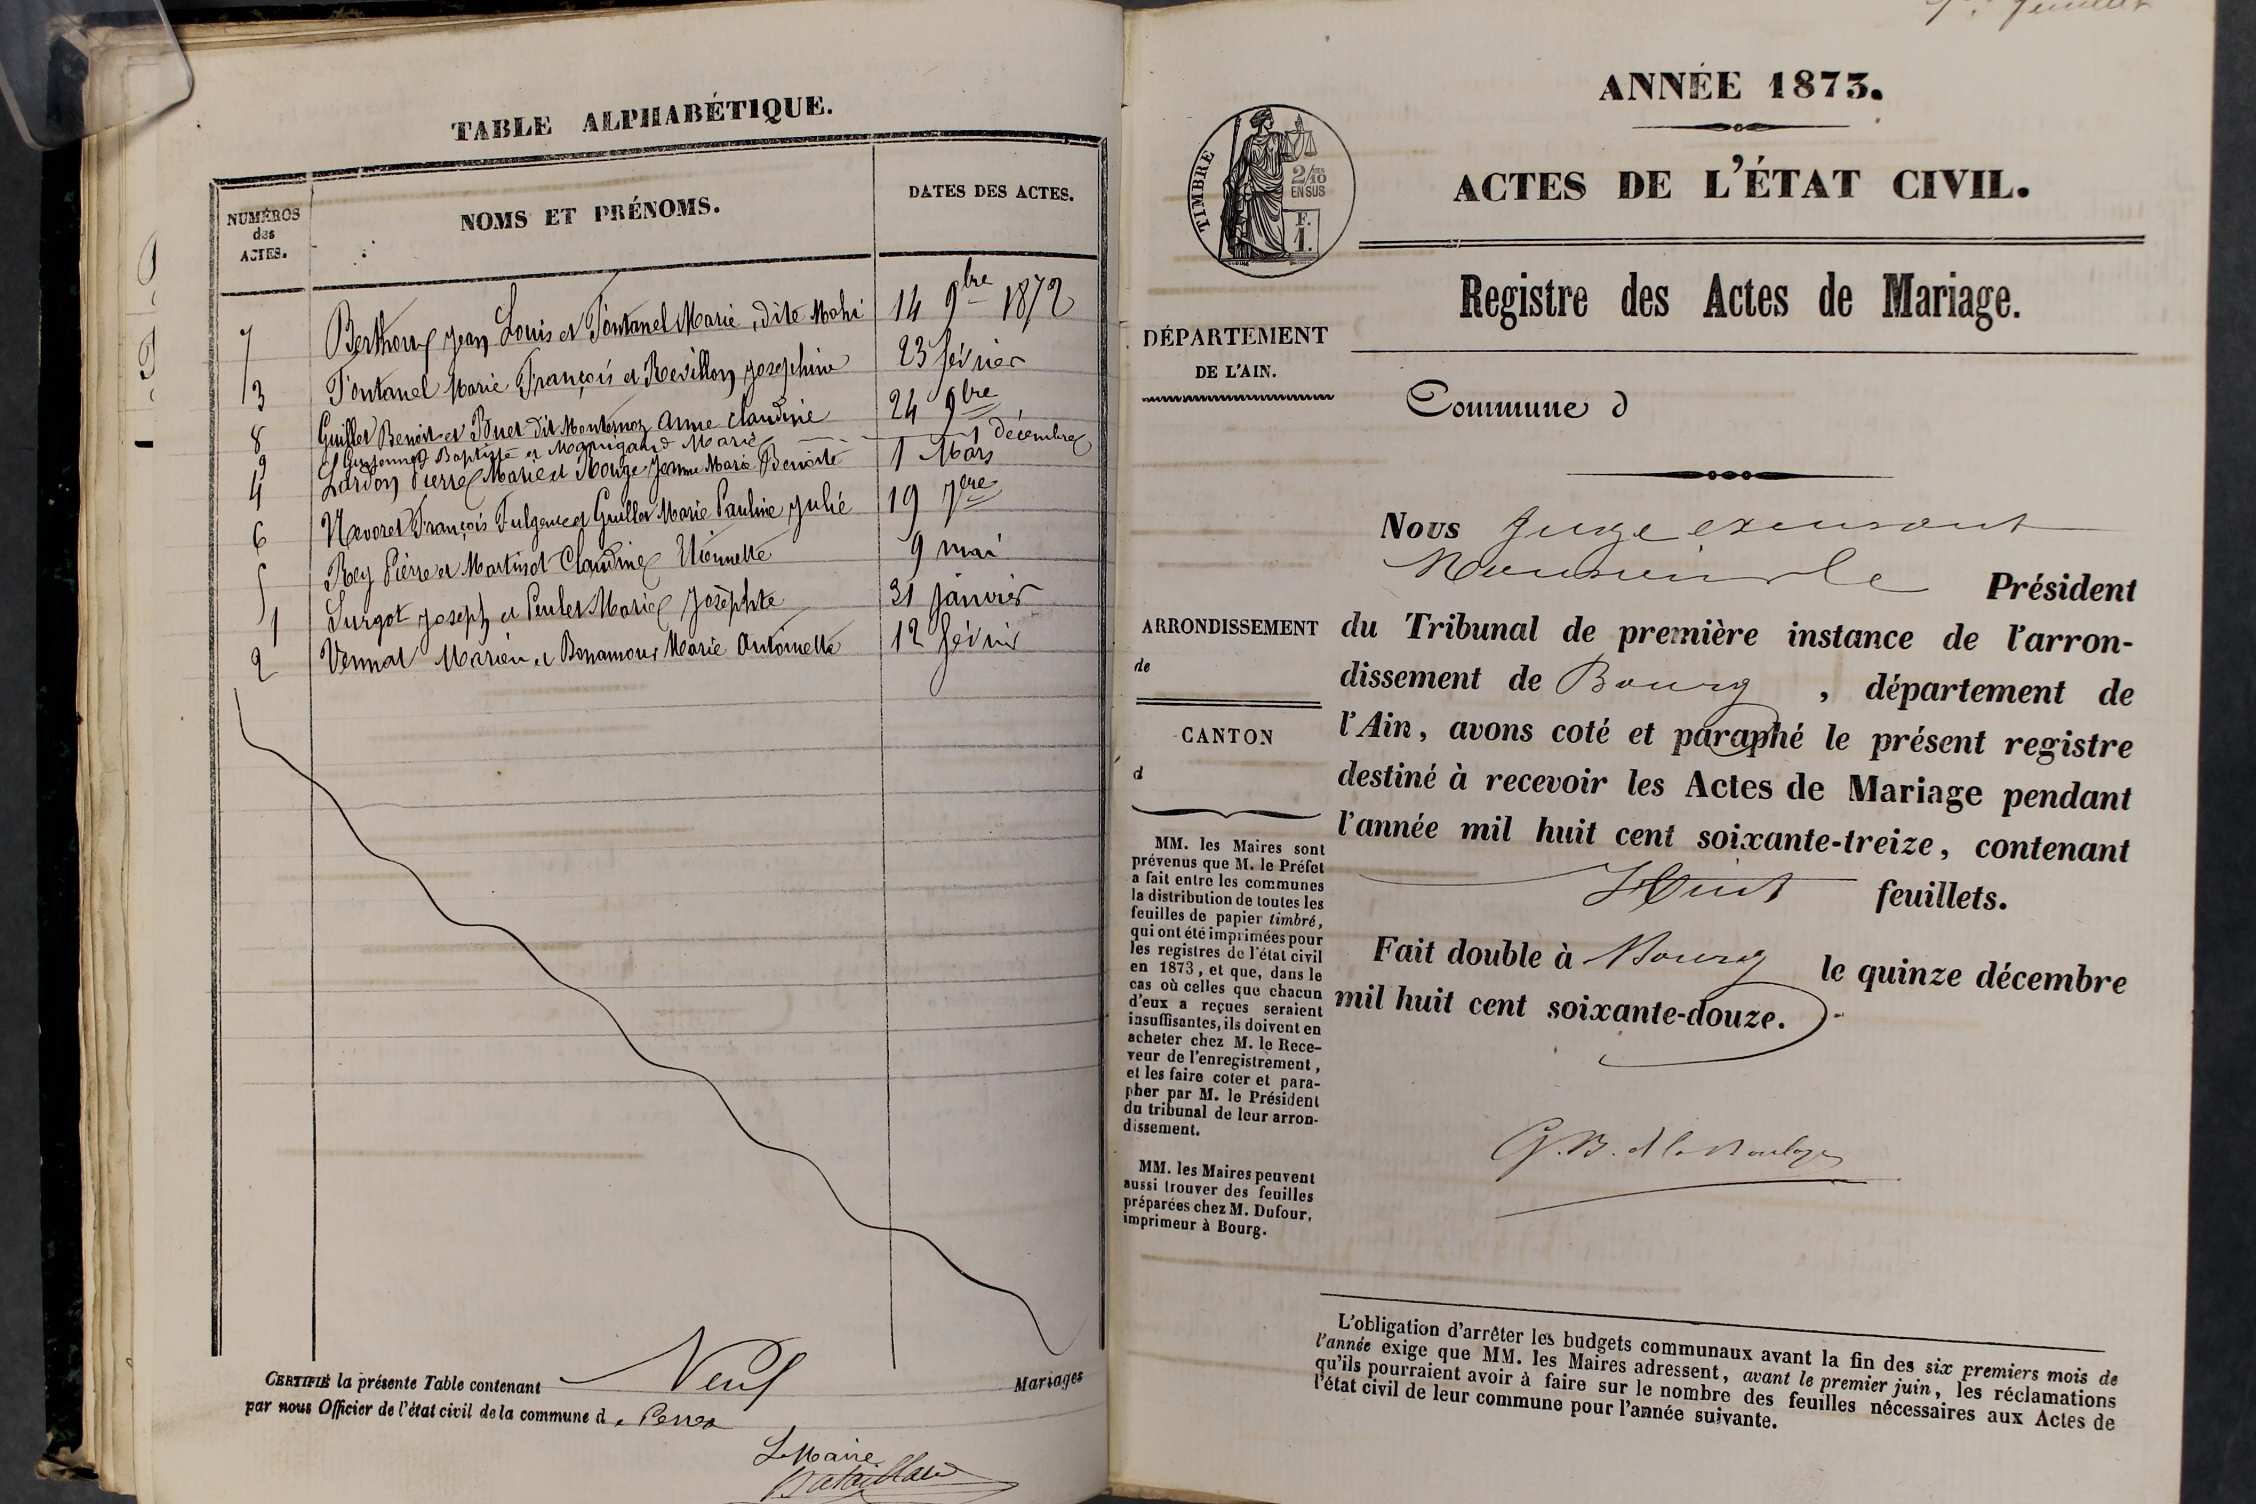 TABLE ALPHABÉTIQUE.
NUMÉROS
des
ACTES.
NOMS ET PRÉNOMS.
DATES DES ACTES.
7 Berthoux Jean Louis et Fontanel Marie, dite Mahi 14 9bre 1872
3 Fontanel Marie François et Revillon Josephine 23 février
8 Guillet Benoit et Buet dit Montернoz Anne Claudine 24 9bre
9 Baptiste et Marie 1 décembre
4 Lardon Pierre Marie et Rouge Jeanne Marie Benoite 1 Mars
6 Nevoret François Fulgence et Guillet Marie Pauline Julie 19 7bre
5 Rey Pierre et Martinet Claudine Etiennette 9 mai
1 Surgot Joseph et Penlet Marie Josephte 31 janvier
2 Vennat Marien et Bonamour Marie Antoinette 12 février
CERTIFIÉ la présente Table contenant Neuf Mariages
par nous Officier de l'état civil de la commune de Perrex
Le Maire
1er feuillet
ANNÉE 1873.
TIMBRE
2/10
EN SUS
F.
1.
ACTES DE L'ÉTAT CIVIL.
Registre des Actes de Mariage.
DÉPARTEMENT
DE L'AIN.
Commune d
ARRONDISSEMENT
de
CANTON
d
MM. les Maires sont
prévenus que M. le Préfet
a fait entre les communes
la distribution de toutes les
feuilles de papier timbré,
qui ont été imprimées pour
les registres de l'état civil
en 1873, et que, dans le
cas où celles que chacun
d'eux a reçues seraient
insuffisantes, ils doivent en
acheter chez M. le Rece-
veur de l'enregistrement,
et les faire coter et para-
pher par M. le Président
du tribunal de leur arron-
dissement.
MM. les Maires peuvent
aussi trouver des feuilles
préparées chez M. Dufour,
imprimeur à Bourg.
Nous Juge excusant
Monsieur le Président
du Tribunal de première instance de l'arron-
dissement de Bourg, département de
l'Ain, avons coté et paraphé le présent registre
destiné à recevoir les Actes de Mariage pendant
l'année mil huit cent soixante-treize, contenant
Huit feuillets.
Fait double à Bourg le quinze décembre
mil huit cent soixante-douze.
L'obligation d'arrêter les budgets communaux avant la fin des six premiers mois de
l'année exige que MM. les Maires adressent, avant le premier juin, les réclamations
qu'ils pourraient avoir à faire sur le nombre des feuilles nécessaires aux Actes de
l'état civil de leur commune pour l'année suivante.